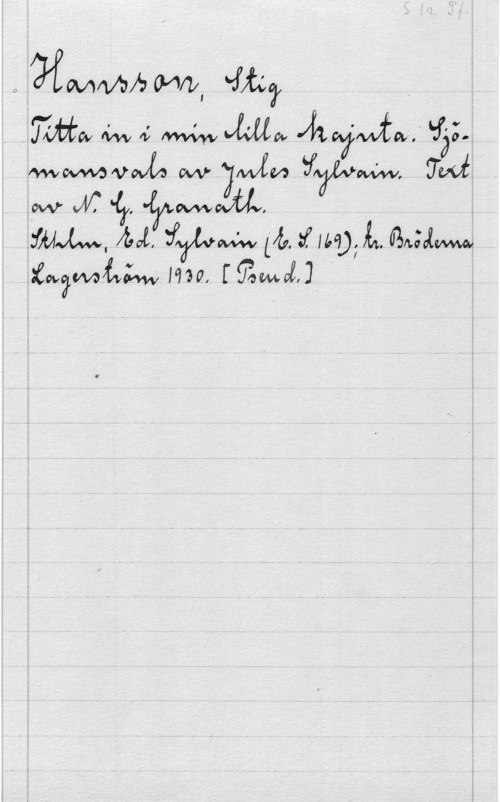 S 12. Pf.
Hansson, Stig
Titta in i min lilla kajuta. Sjö-
mansvals av Jules Sylvain. Text
av N. G. Granath.
Sthlm, Ed. Sylvain (E. S. 169); tr. Bröderna
Lagerström 1930. [Pseud.]